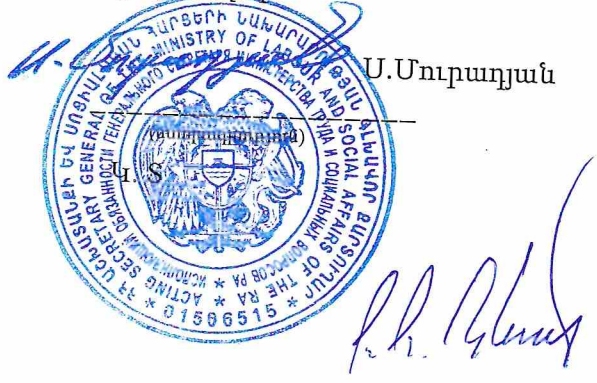 Ս.Մուրադյան
(ստորագրություն)
Կ. Տ
ՀՀ ԱՇԽԱՏԱՆՔԻ ԵՎ ՍՈՑԻԱԼԱԿԱՆ ՀԱՐՑԵՐԻ ՆԱԽԱՐԱՐՈՒԹՅԱՆ ԳԼԽԱՎՈՐ ՔԱՐՏՈՒՂԱՐ
ACTING SECRETARY GENERAL OF THE MINISTRY OF LABOR AND SOCIAL AFFAIRS OF THE RA
ИСПОЛНЯЮЩИЙ ОБЯЗАННОСТИ ГЕНЕРАЛЬНОГО СЕКРЕТАРЯ МИНИСТЕРСТВА ТРУДА И СОЦИАЛЬНЫХ ВОПРОСОВ РА
* 01506515 *